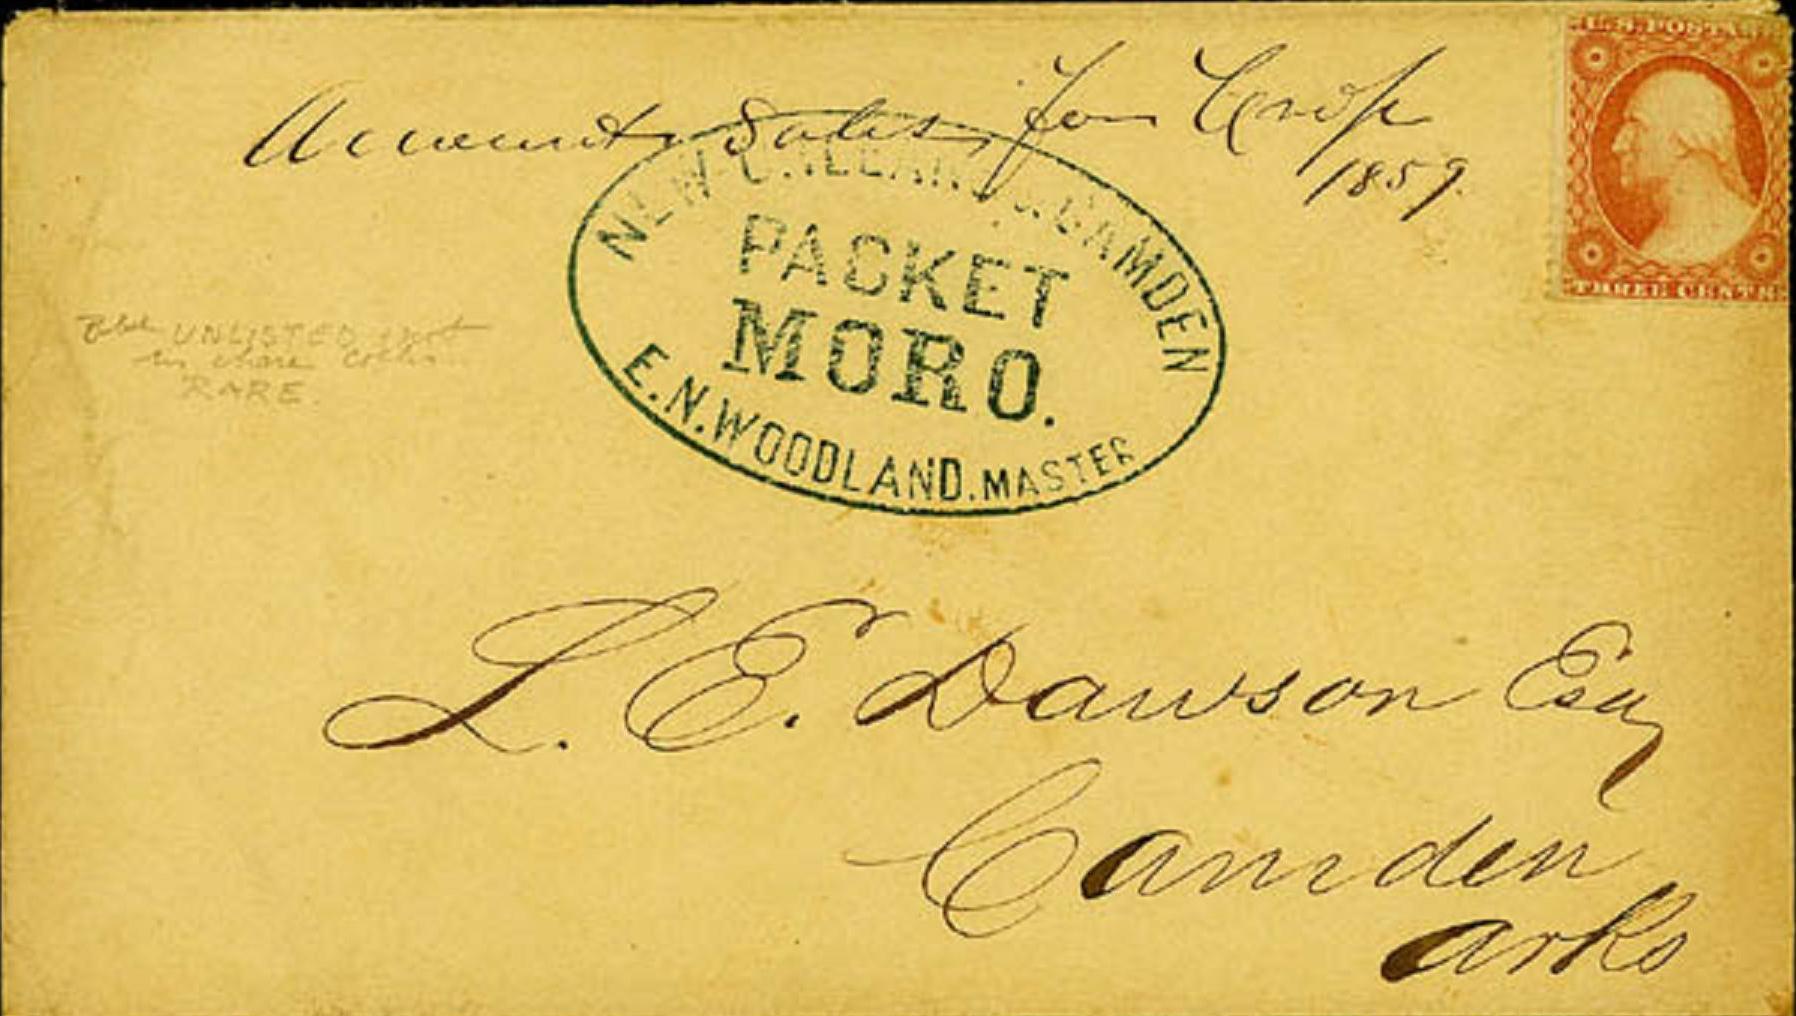 Account Sales for Crop
1859.
U.S. POSTAGE
THREE CENTS
NEW-ORLEANS & CAMDEN
PACKET
MORO.
E.N. WOODLAND. MASTER
UNLISTED & not
in
RARE.
L. E. Dawson Esq
Camden
Arks